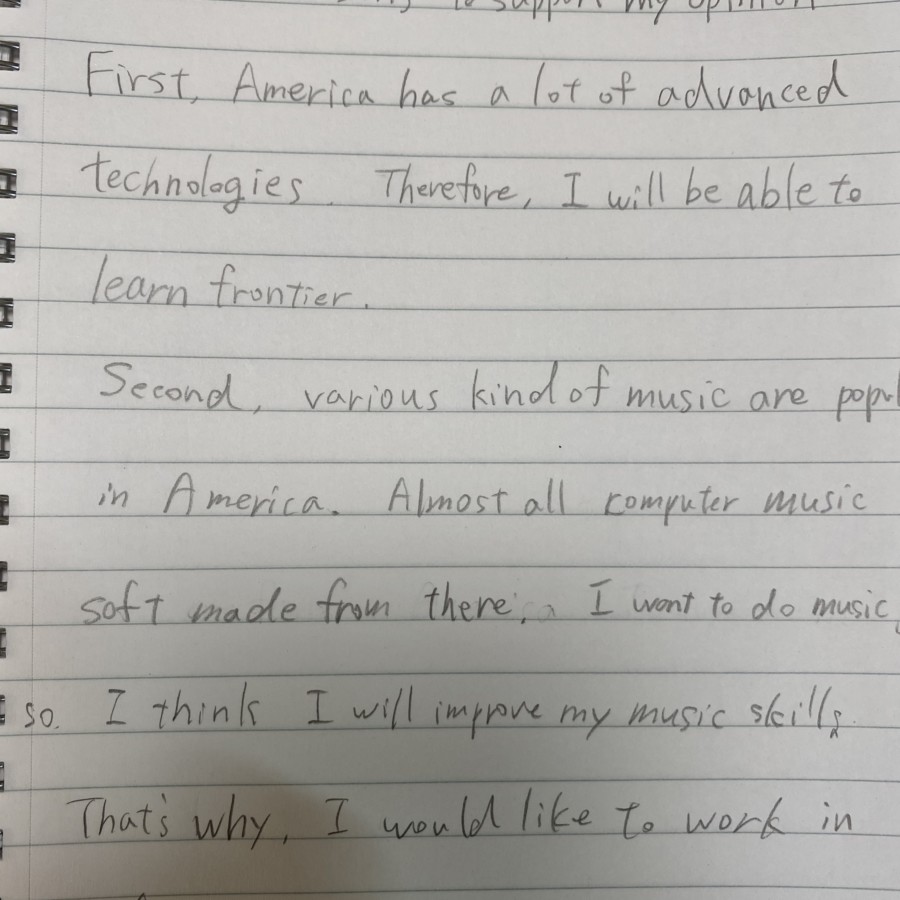 to support my opinion
First, America has a lot of advanced
technologies. Therefore, I will be able to
learn frontier.
Second, various kind of music are popul
in America. Almost all computer music
soft made from there, I want to do music,
so. I think I will improve my music skills.
That's why, I would like to work in